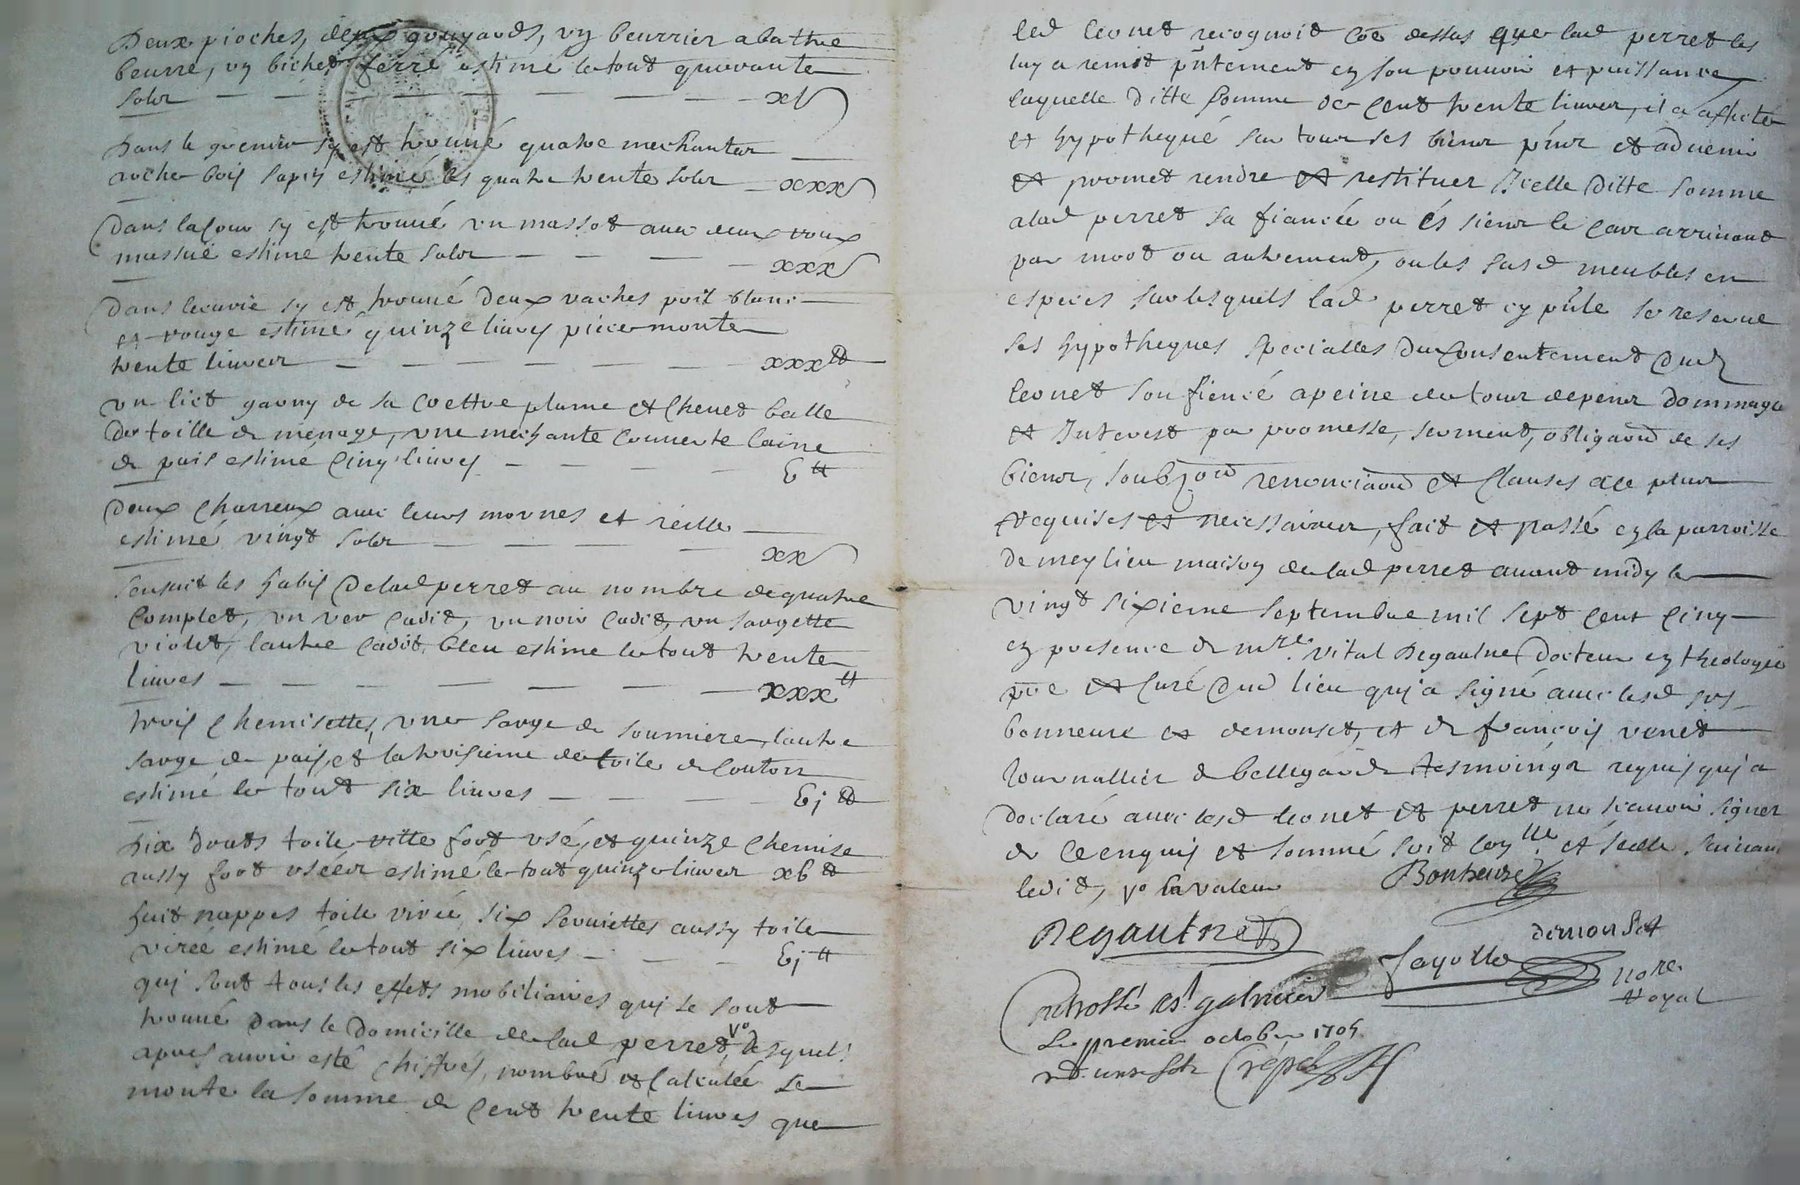 Deux pioches, deux gouyards, un beurrier a batre
beurre, un bichet ferré estimé le tout quarante
solz — xl s
Dans le grenier sy est trouvé quatre meschantes
arches bois sapin estimé les quatre trente solz — xxx s
Dans la cour sy est trouvé un massot avec deux roux
massue estimé trente solz — xxx s
Dans lecurie sy est trouvé deux vaches poil blanc
et rouge estimé quinze livres piece monte
trente livres — xxx ₶
un lict garny de sa coettre plume et chevet balle
de toille de menage, une meschante couverte laine
de païs estimé cinq livres — b ₶
Deux charreux avec leurs mornes et reille
estimé vingt solz — xx s
sensuit les habis de lad perret au nombre de quatre
complet, un ver cadit, un noir cadit, un sargette
violet, lautre cadit bleu estimé le tout trente
livres — xxx ₶
trois chemisettes, une sarge de soumiere, lautre
sarge de païs, et la troisieme de toile de couton
estimé le tout six livres — bj ₶
Dix draps toile fort usé, et quinze chemise
aussy fort usées estimé le tout quinze livres xb ₶
huit nappes toile virée, six serviettes aussy toile
virée estimé le tout six livres — bj ₶
qui sont tous les effets mobiliaires qui se sont
trouvé dans le domicille de lad perret, desquels
apres avoir esté chiffrés, nombré et calculée se
monte la somme de cent trente livres que
led leonet recognoit coe dessus que lad perret les
luy a remit pntement en son pouvoir et puissance
laquelle ditte somme de cent trente livres, il a affecté
et hypothequé sur tous ses biens pñts et advenir
et promet rendre et restituer icelle ditte somme
a lad perret sa fiancée ou és siens le cas arrivant
par mort ou autrement, ou les susd meubles en
especes sur lesquels lad perret cy pñte se reserve
ses hypotheques specialles du consentement dud
leonet son fiencé a peine de tous depens dommage
et Interest par promesse, serment, obligaõn de ses
biens, soubzõn renonciaõn et clauses a ce plus
requises et necessaires, fait et passé en la parroisse
de meylieu maison de lad perret avant midy le
vingt sixieme septembre mil sept cent cinq
en presence de mre vital Regautnet docteur en theologie
pre et curé dud lieu qui a signé avec lesd srs
bonneure et demonset, et de françois venet
Journallier de bellegarde tesmoings requis qui a
declaré avec lesd leonet et perret ne scavoir signer
de ce enquis et sommé soit conlle et scelle suivant
ledit, vo la valeur
Bonheure
Regautnet
demonset
fayolle
nore
Royal
Controllé a St galmier
Le premier octobre 1705
Crépet